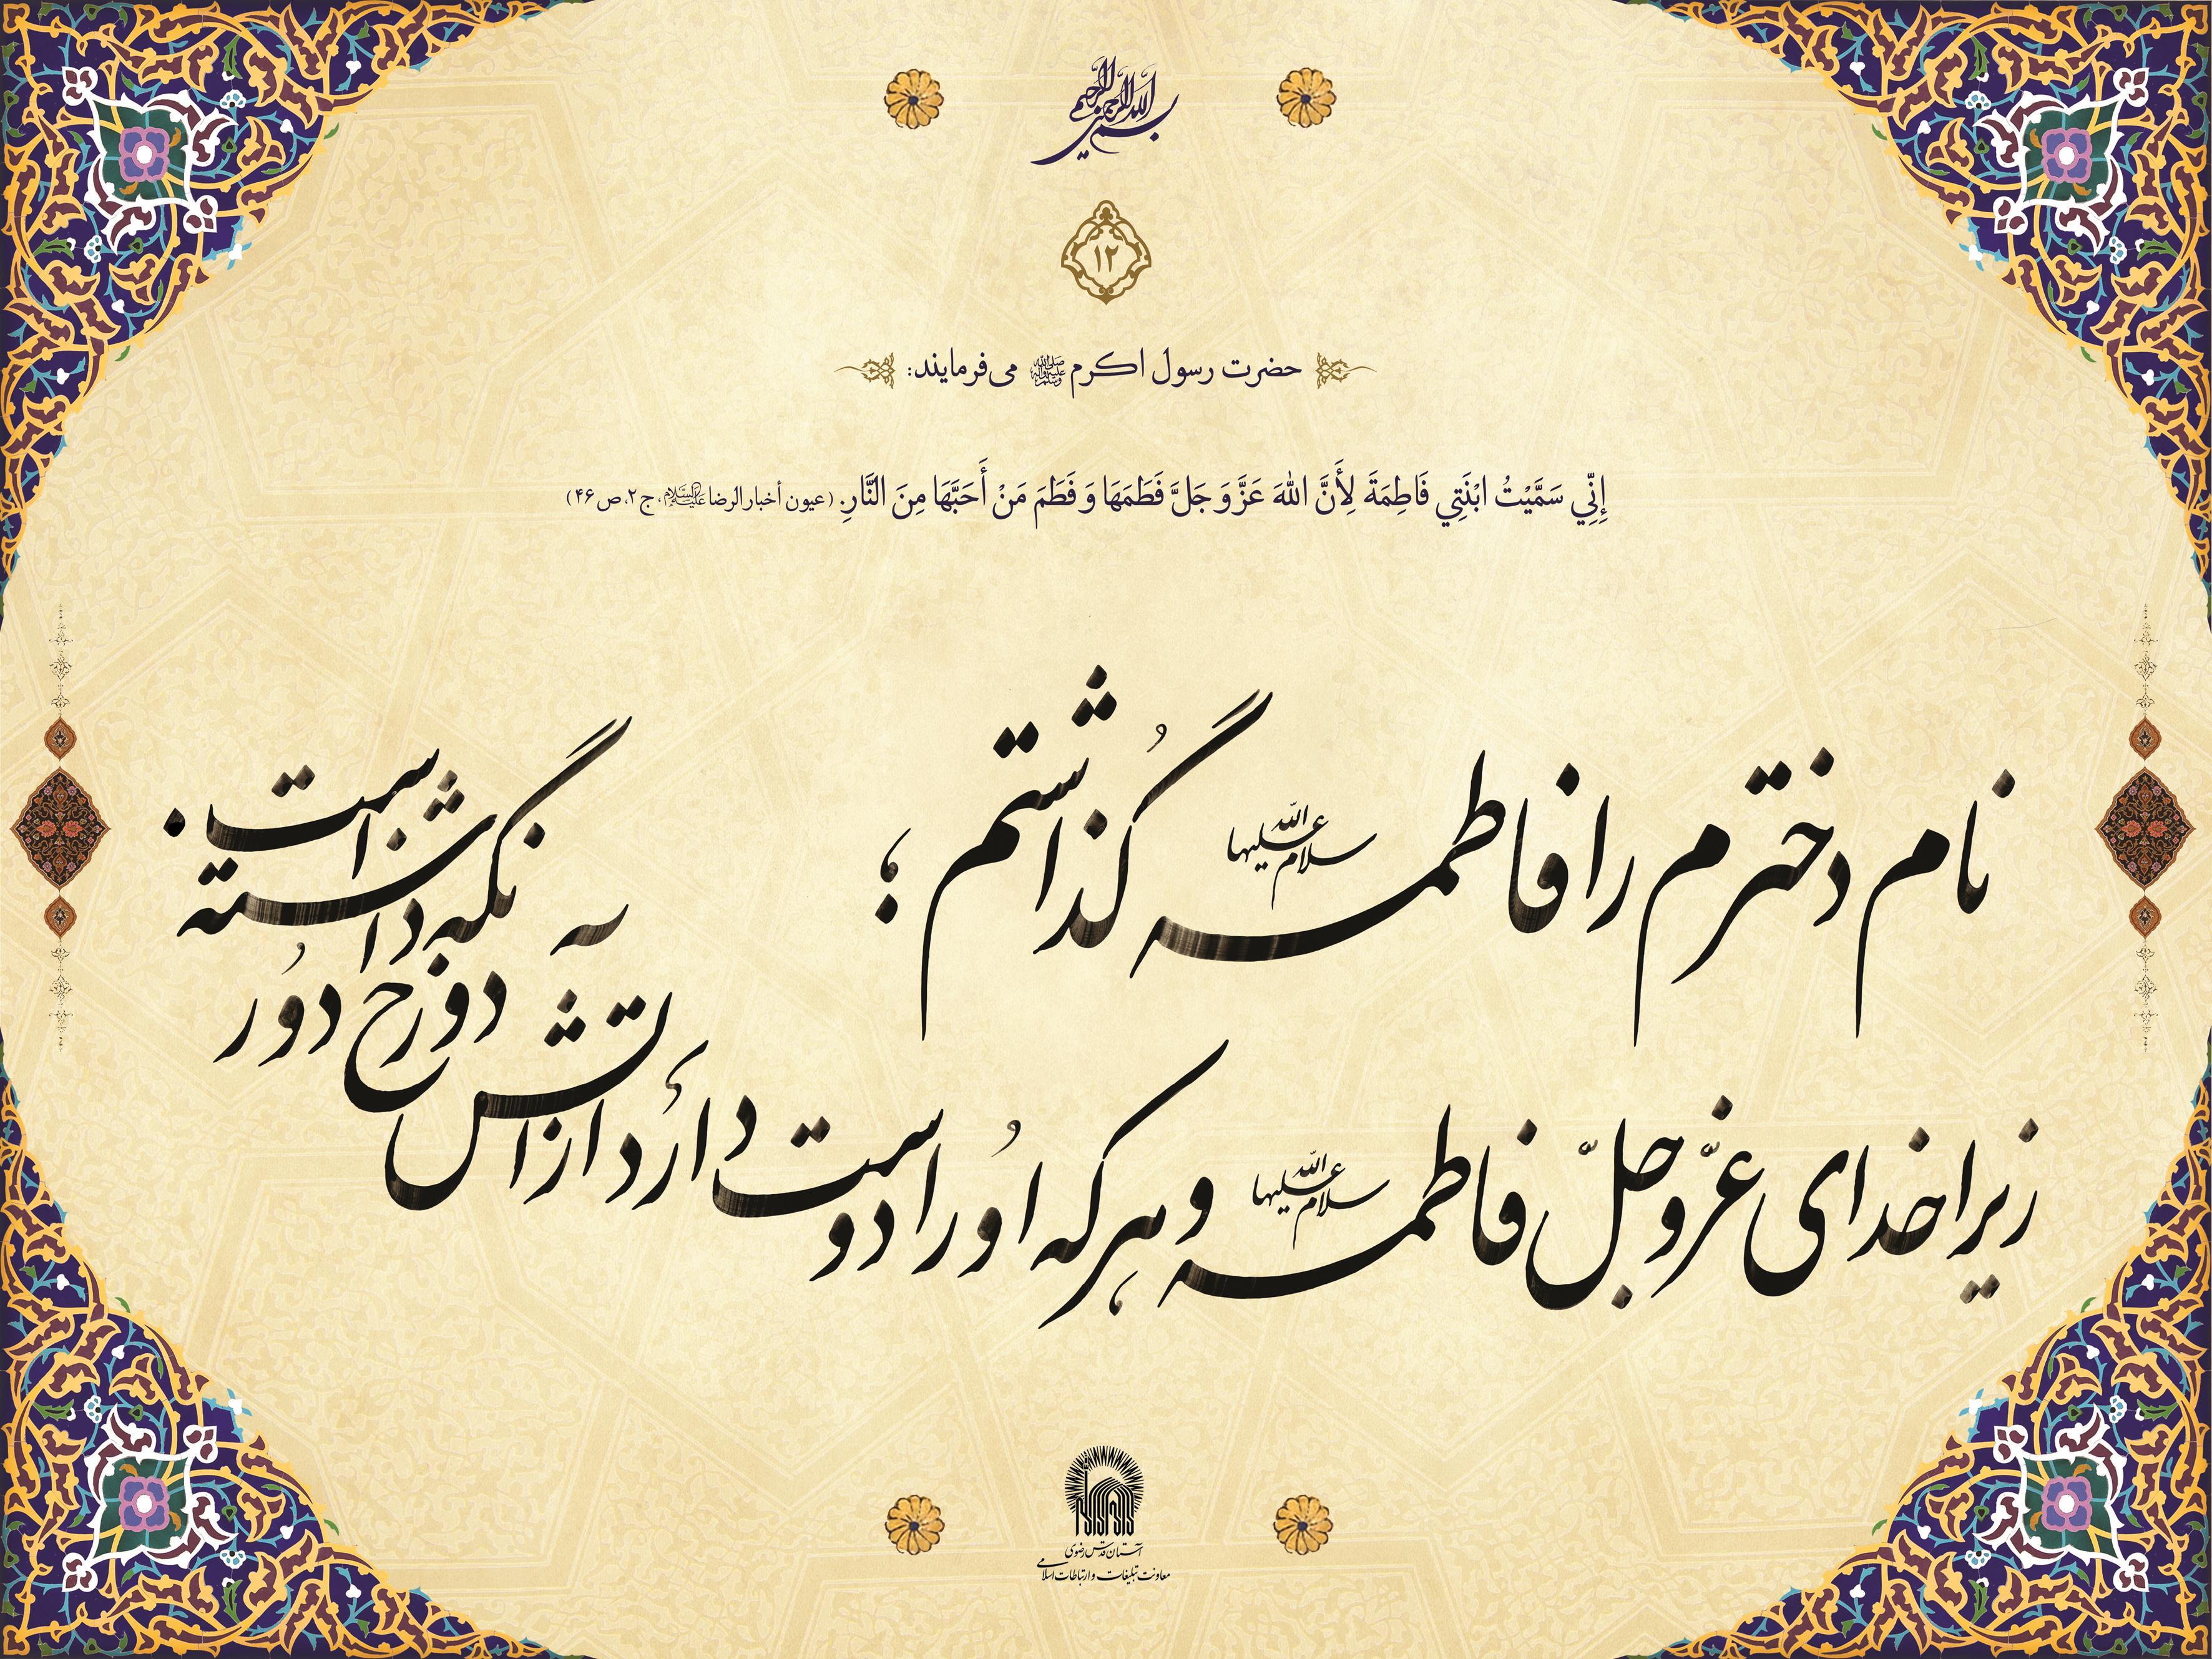 بسم الله الرحمن الرحیم
۱۲
حضرت رسول اکرم ﷺ می‌فرمایند:
إِنِّي سَمَّيْتُ ابْنَتِي فَاطِمَةَ لِأَنَّ اللهَ عَزَّ وَ جَلَّ فَطَمَهَا وَ فَطَمَ مَنْ أَحَبَّهَا مِنَ النَّارِ. (عیون أخبار الرضا علیه‌السلام، ج ۲، ص ۴۶)
نام دخترم را فاطمه سلام الله علیها گُذاشتم؛
زیرا خدای عزّ و جلّ فاطمه سلام الله علیها و هر که اُو را دوست دارَد از آتش دوزخ دُور نگه داشته است.
آستان قدس رضوی
معاونت تبلیغات و ارتباطات اسلامی